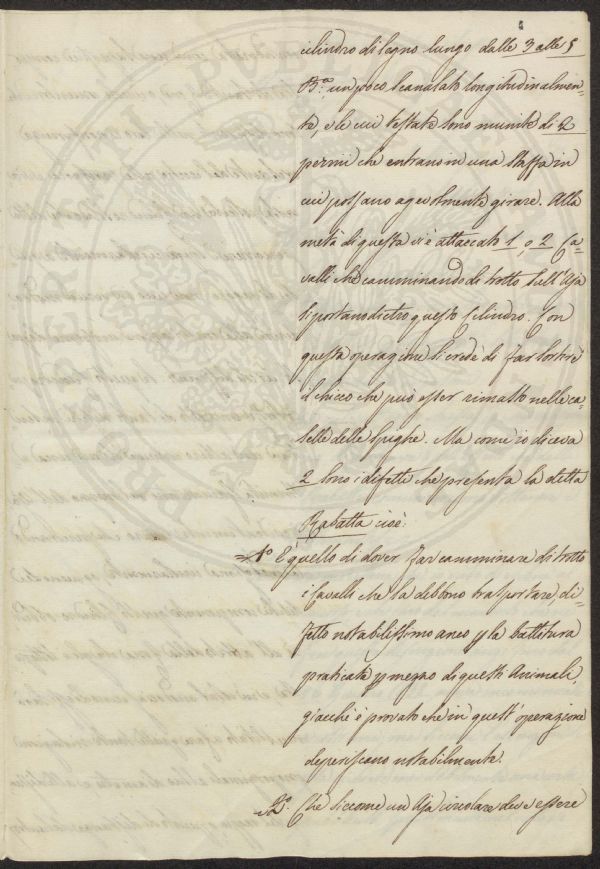 cilindro di legno lungo dalle 3 alle 5
B.ª un poco scanalato longitudinalmen-
te, e le cui testate sono munite di 2
perni che entrano in una staffa in
cui possano agevolmente girare. Alla
metà di questa vi è attaccato 1, o 2 Ca-
valli che camminando di trotto sull'Aja
si portano dietro questo Cilindro. Con
questa operazione si crede di far sortire
il chicco che può esser rimasto nelle ca-
selle delle spighe. Ma come io diceva
2 sono i difetti che presenta la detta
Rabatta cioè:
1º E quello di dover far camminare di trotto
i Cavalli che la debbono trasportare, di-
fetto notabilissimo anco p la battitura
praticata p mezzo di questi Animali,
giacchè è provato che in quest'operazione
deperiscono notabilmente.
2º. Che siccome un Aja circolare deve essere